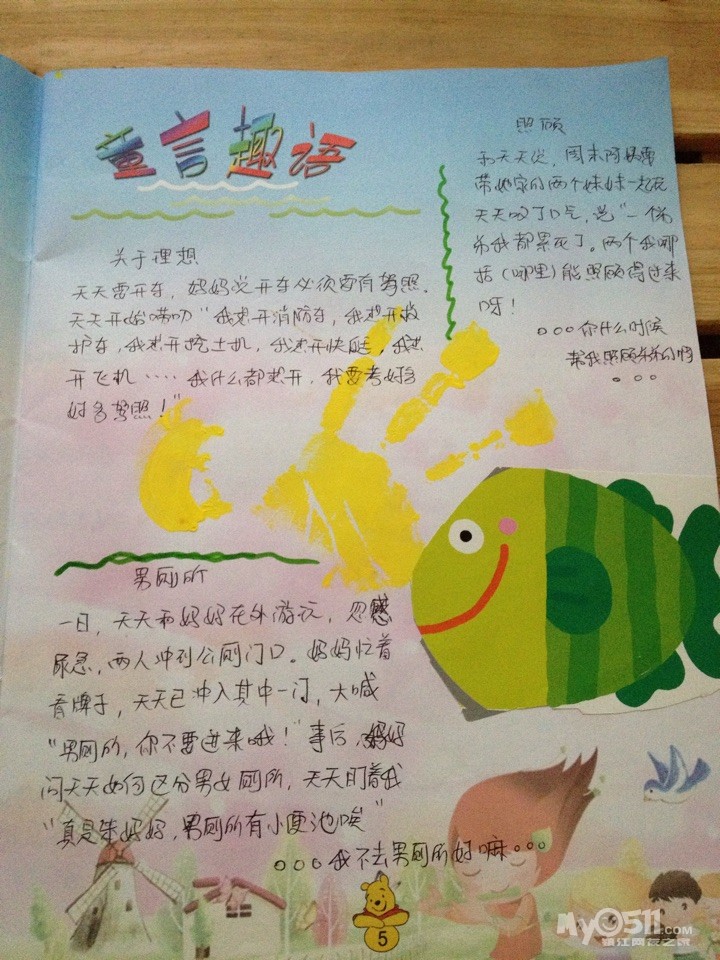 童言趣语
关于理想
天天要开车，妈妈说开车必须要有驾照。
天天开始唠叨“我想开消防车，我想开救
护车，我想开挖土机，我想开快艇，我想
开飞机……我什么都想开，我要考好多
好多驾照！”
照顾
和天天说，周末阿姨要
带她家的两个妹妹一起玩
天天叹了口气，说“一个弟
弟我都累死了。两个我哪
括（哪里）能照顾得过来
呀！
。。。你什么时候
帮我照顾弟弟的啊
。。。
男厕所
一日，天天和妈妈在外游玩，忽感
尿急，两人冲到公厕门口。妈妈忙着
看牌子，天天已冲入其中一门，大喊
“男厕所，你不要进来哦！”事后，妈妈
问天天如何区分男女厕所，天天盯着我
“真是笨妈妈，男厕所有小便池唉”
。。。我不去男厕所好嘛。。。
5
My0511.com
镇江网友之家